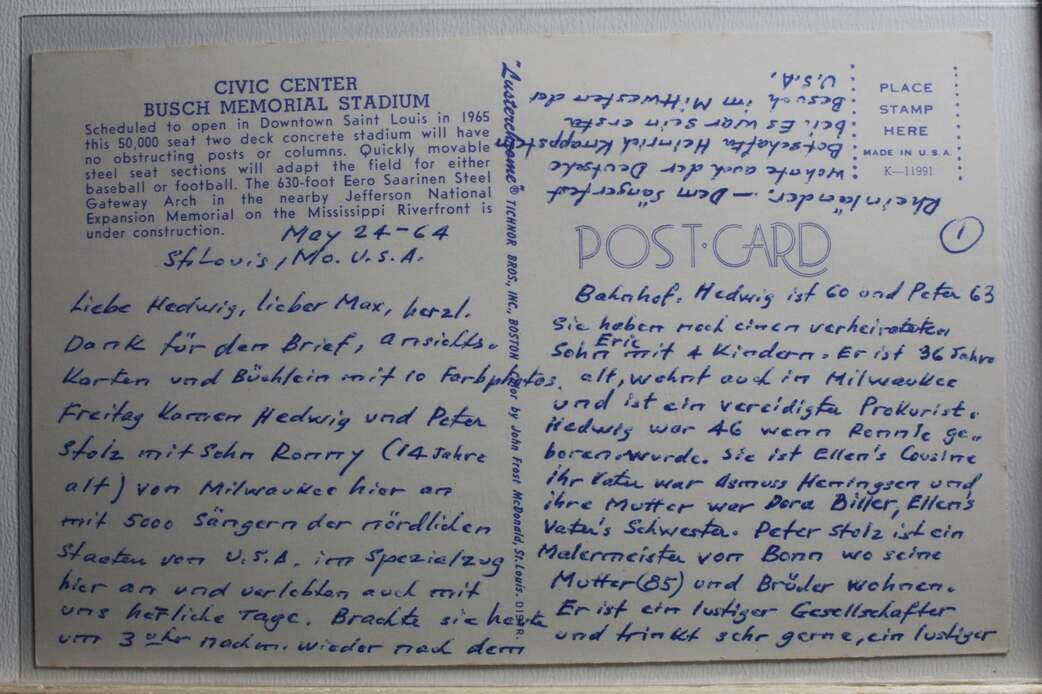 CIVIC CENTER
BUSCH MEMORIAL STADIUM
Scheduled to open in Downtown Saint Louis in 1965
this 50,000 seat two deck concrete stadium will have
no obstructing posts or columns. Quickly movable
steel seat sections will adapt the field for either
baseball or football. The 630-foot Eero Saarinen Steel
Gateway Arch in the nearby Jefferson National
Expansion Memorial on the Mississippi Riverfront is
under construction.
May 24-64
St. Louis, Mo. U.S.A.
Liebe Hedwig, lieber Max, herzl.
Dank für den Brief, Ansichts-
Karten und Büchlein mit 10 Farbphotos.
Freitag Kamen Hedwig und Peter
Stolz mit Sohn Ronny (14 Jahre
alt) von Milwaukee hier an
mit 5000 Sängern der nördlichen
Staaten von U.S.A. im Spezialzug
hier an und verlebten auch mit
uns herrliche Tage. Brachte sie heute
um 3 Uhr nachm. wieder nach dem
"Lusterchrome"® TICHNOR BROS., INC., BOSTON
Color by John Frost McDonald, St. Louis. DISTR.
PLACE
STAMP
HERE
MADE IN U.S.A.
K-11991
POST CARD
1
Bahnhof. Hedwig ist 60 und Peter 63
Sie haben noch einen verheirateten
Sohn Eric mit 4 Kindern. Er ist 36 Jahre
alt, wohnt auch in Milwaukee
und ist ein vereidigter Prokurist.
Hedwig war 46 wenn Ronnie ge-
boren wurde. Sie ist Ellen's Cousine
ihr Vater war Asmuss Henningsen und
ihre Mutter war Dora Biller, Ellen's
Vater's Schwester. Peter Stolz ist ein
Malermeister von Bonn wo seine
Mutter (85) und Brüder wohnen.
Er ist ein lustiger Gesellschafter
und trinkt sehr gerne, ein lustiger
Rheinländer. — Dem Sängerfest
wohnte auch der Deutsche
Botschafter Heinrich Knappstein
bei. Es war sein erster
Besuch im Mittwesten der
U.S.A.